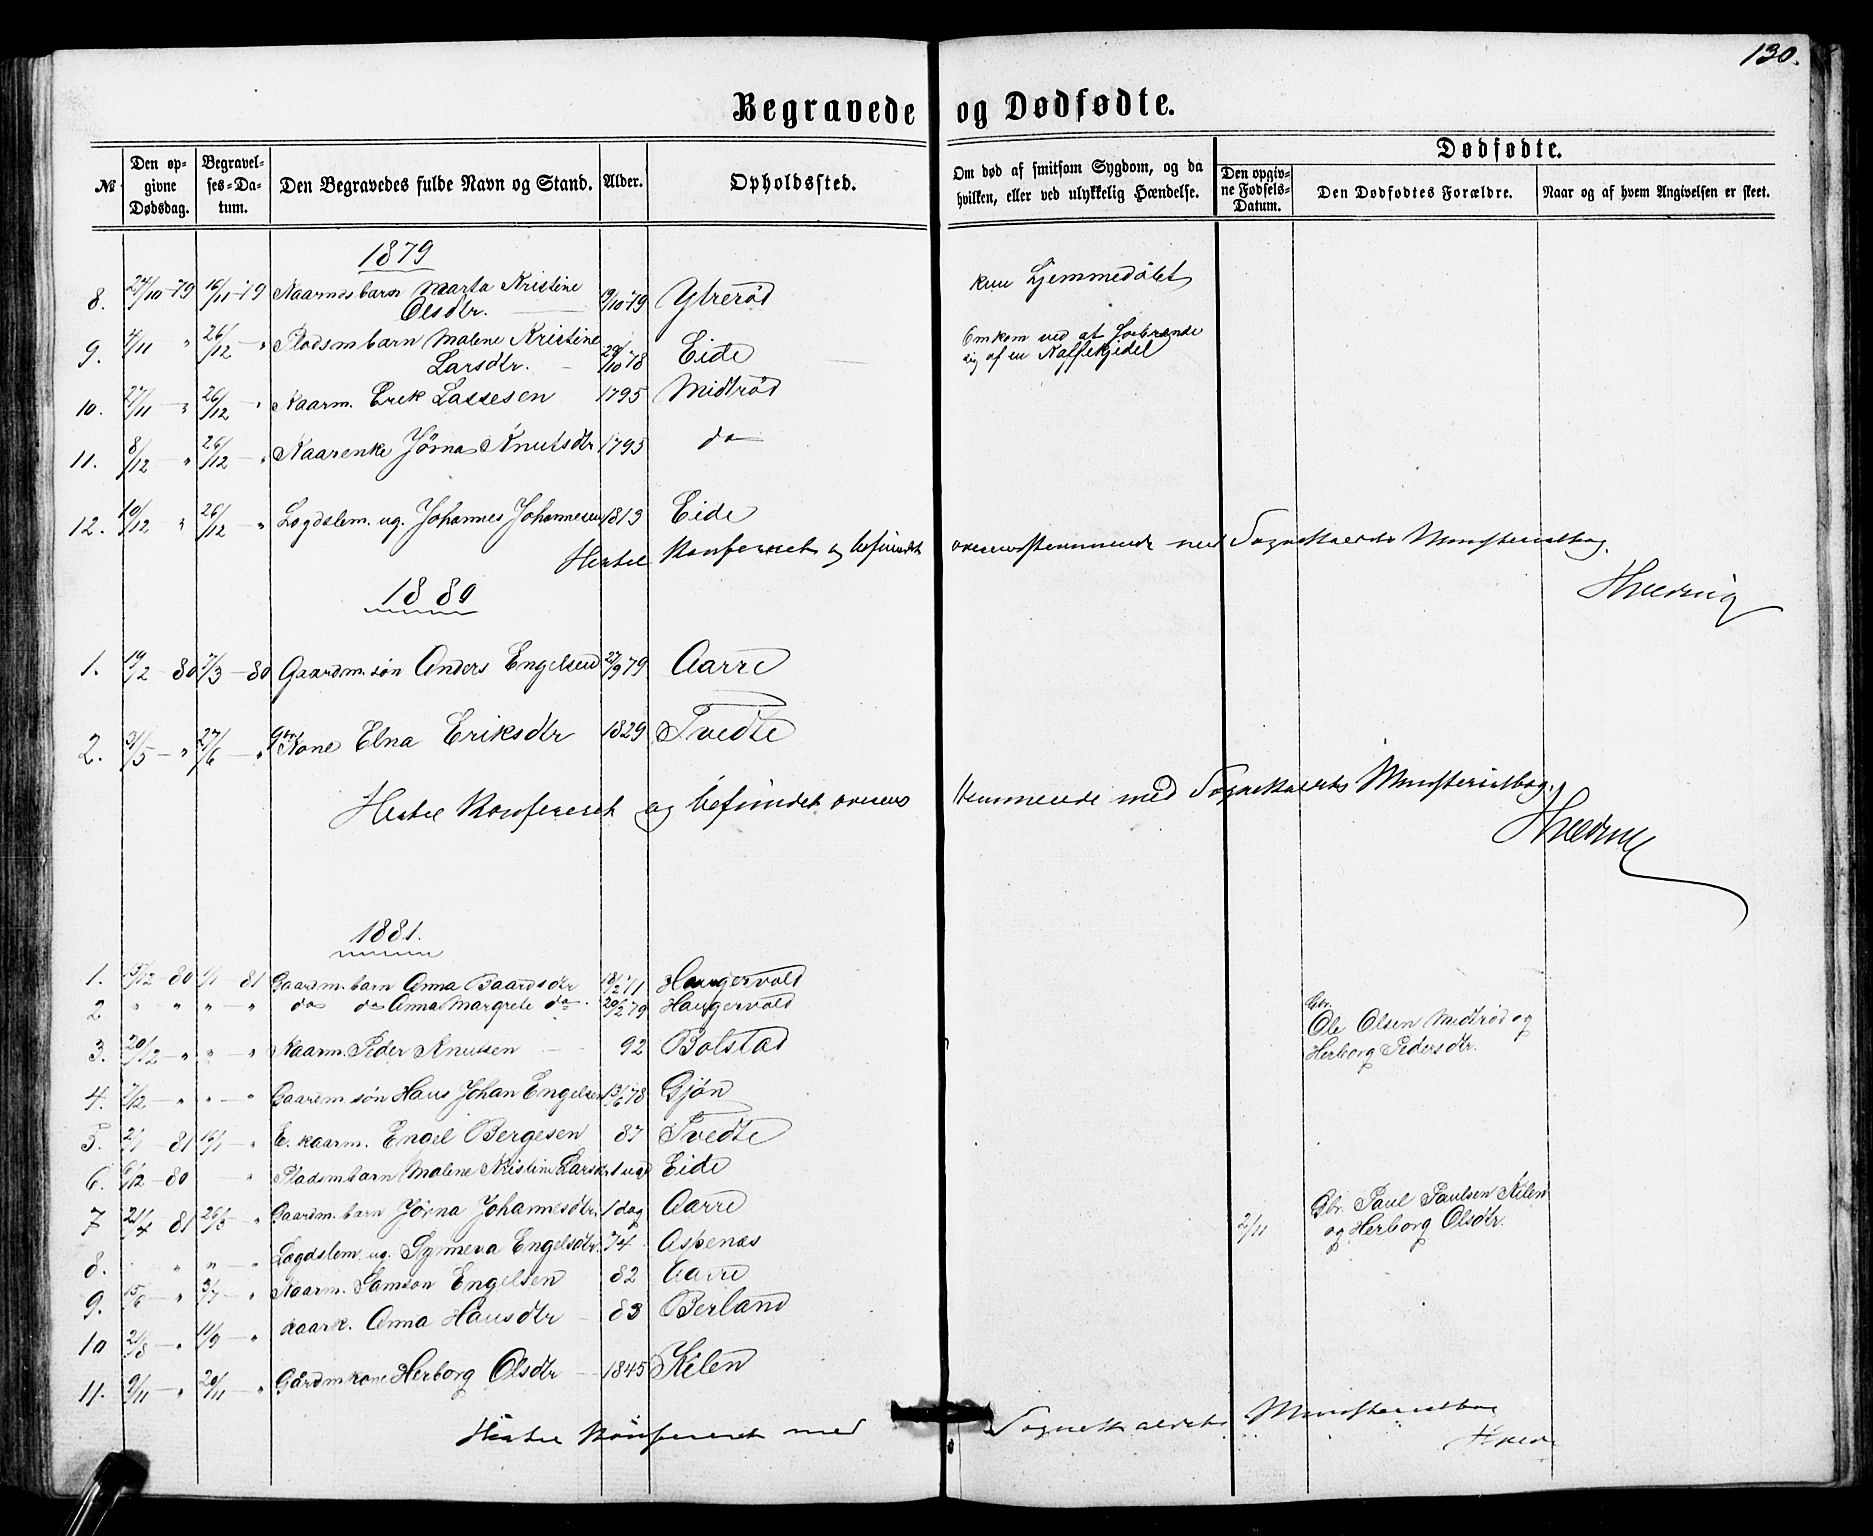 130.
Begravede og Dødfødte.
№ | Den opgivne Dødsdag. | Begravelses-Datum. | Den Begravedes fulde Navn og Stand. | Alder. | Opholdssted. | Om død af smitsom Sygdom, og da hvilken, eller ved ulykkelig Hændelse. | Dødfødte. | Den opgivne Fødsels-Datum. | Den Dødfødtes Forældre. | Naar og af hvem Angivelsen er skeet.
1879
8. 24/10-79 16/11-79 Kaarmsbarn Marta Kristine 9/10 79 Ytrerød kun hjemmedøbt
Olsdtr.
9. 4/11 " 26/12 - " Pladsmbarn Malene Kristine Omkom ved at forbrænde
Larsdtr. 29/10 78 Eide sig af en Kaffekjedel
10. 27/11 " 26/12 - " Kaarm. Erik Lassesen 1795 Midtrød
11. 8/12 " 26/12 - " Kaarenke Jørna Knutsdtr 1795 do
12. 10/12 " 26/12 - " Logdslem. ug. Johannes Johannesen 1813 Eide
Hertil Konfereret og befundet overensstemmende med Sogneskaldets Ministerialbog.
1880
1. 19/2 - 80 7/3 - 80 Gaardm. søn Anders Engelsen 27/9 79 Aarre
2. 31/5 - " 27/6 - " Gm Kone Elna Eriksdtr 1829 Tvedte
Hertil Konfereret og befundet overens stemmende med Sognekaldets Ministerialbog.
1881.
1. 15/12 - 80 1/1 81 Gaardm. barn Anna Baardsdtr 18/2 71 Haugervold
2 " " " " - " do do Anna Margrete do 20/2 79 Haugervold
3. 20/12 - " " - " Kaarm. Peder Knutsen 92 Bolstad
Gbr.
Ole Olsen Midtrød og
Herborg Pedersdtr.
4. 7/12 - " " - " Gaarem. søn Hans Johan Engelsen 13/6 78 Gjøn
5. 2/1 81 16/1 " E. kaarm. Engel Bergesen 87 Tvedte
6. 6/12 - 80 - " Pladsmbarn Malene Kristine Larsdtr 1 Eide
7 21/4 81 26/5 " Gaardm. barn Jørna Johannesdtr. 1 dag Aarre
2/11 Gbr. Paul Paulsen Kilen
og Herborg Olsdtr.
8. " " - " Lægdslem ug. Synneva Engelsdtr. 74 Aspenæs
9. 15/6 " 3/7 - " Kaarm. Samson Engelsen 82 Aarre
10 21/8 - " 11/9 - " Kaark. Anna Hansdtr - 83 Berland
11. 9/11 - " 20/11 - " Gårdmkone Herborg Olsdtr - 1845 Kilen
Hertil Konfereret med Sognekaldets Ministerialbog